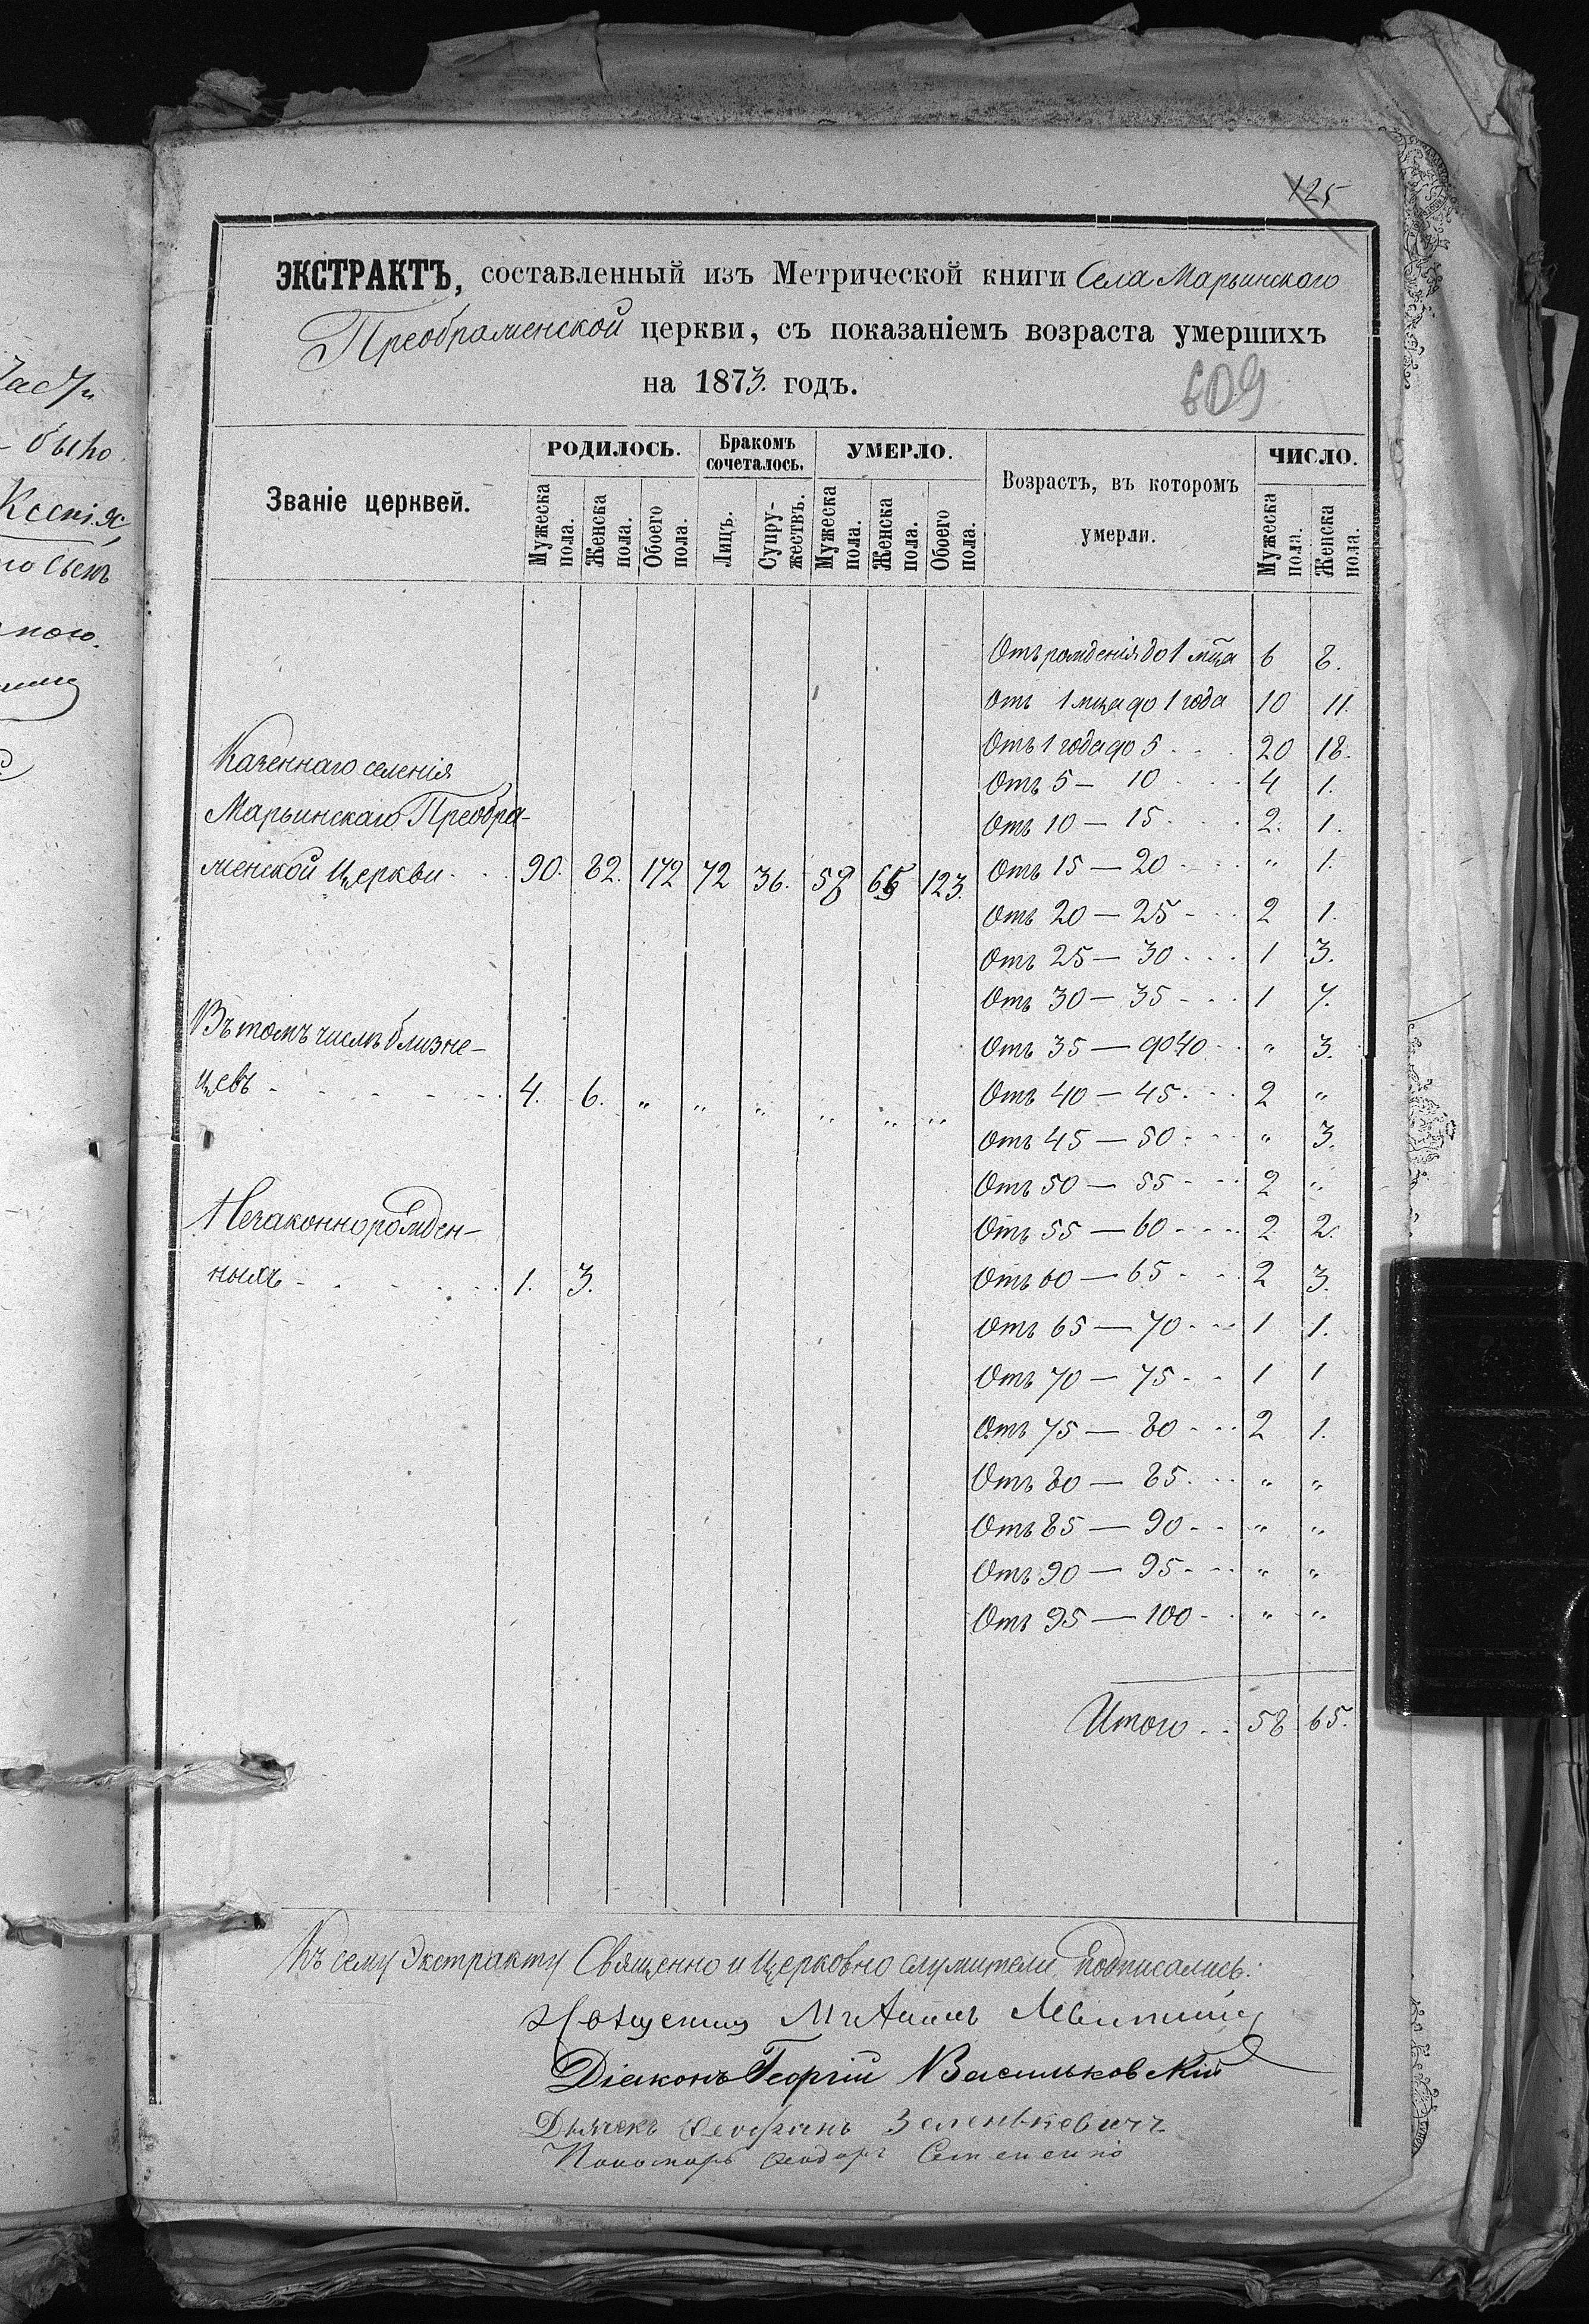 125
ЭКСТРАКТЪ, составленный изъ Метрической книги Села Марьинскаго
Преображенской церкви, съ показаніемъ возраста умершихъ
на 1873. годъ.
609
Званіе церквей.
РОДИЛОСЬ.
Бракомъ сочеталось.
УМЕРЛО.
Возрастъ, въ котором​ъ умерли.
ЧИСЛО.
Мужеска пола.
Женска пола.
Обоего пола.
Лицъ.
Супружествъ.
Мужеска пола.
Женска пола.
Обоего пола.
Мужеска пола.
Женска пола.
Отъ рожденія до 1 мца 6 8.
Отъ 1 мца до 1 года 10 11.
Отъ 1 года до 5 20 18.
Отъ 5 — 10 4 1.
Отъ 10 — 15 2. 1.
Отъ 15 — 20 " 1.
Отъ 20 — 25 2 1.
Отъ 25 — 30 1 3.
Отъ 30 — 35 1 7.
Отъ 35 — до 40 " 3.
Отъ 40 — 45 2 "
Отъ 45 — 50 " 3.
Отъ 50 — 55 2 "
Отъ 55 — 60 2 2.
Отъ 60 — 65 2 3.
Отъ 65 — 70 1 1.
Отъ 70 — 75 1 1
Отъ 75 — 80 2 1.
Отъ 80 — 85 " "
Отъ 85 — 90 " "
Отъ 90 — 95 " "
Отъ 95 — 100 " "
Итого 58 65.
Казеннаго селенія
Марьинскаго Преобра-
женской Церкви 90. 82. 172 72 36. 58 65 123.
Въ томъ числѣ близне-
цевъ 4. 6. " " " " " "
Незаконнорожден-
ныхъ 1. 3.
Къ сему Экстракту Священно и Церковно служители подписались:
Діаконъ Георгій Васильковскій
Дьячекъ Феофанъ Зеленкевичъ
Пономарь Феодоръ